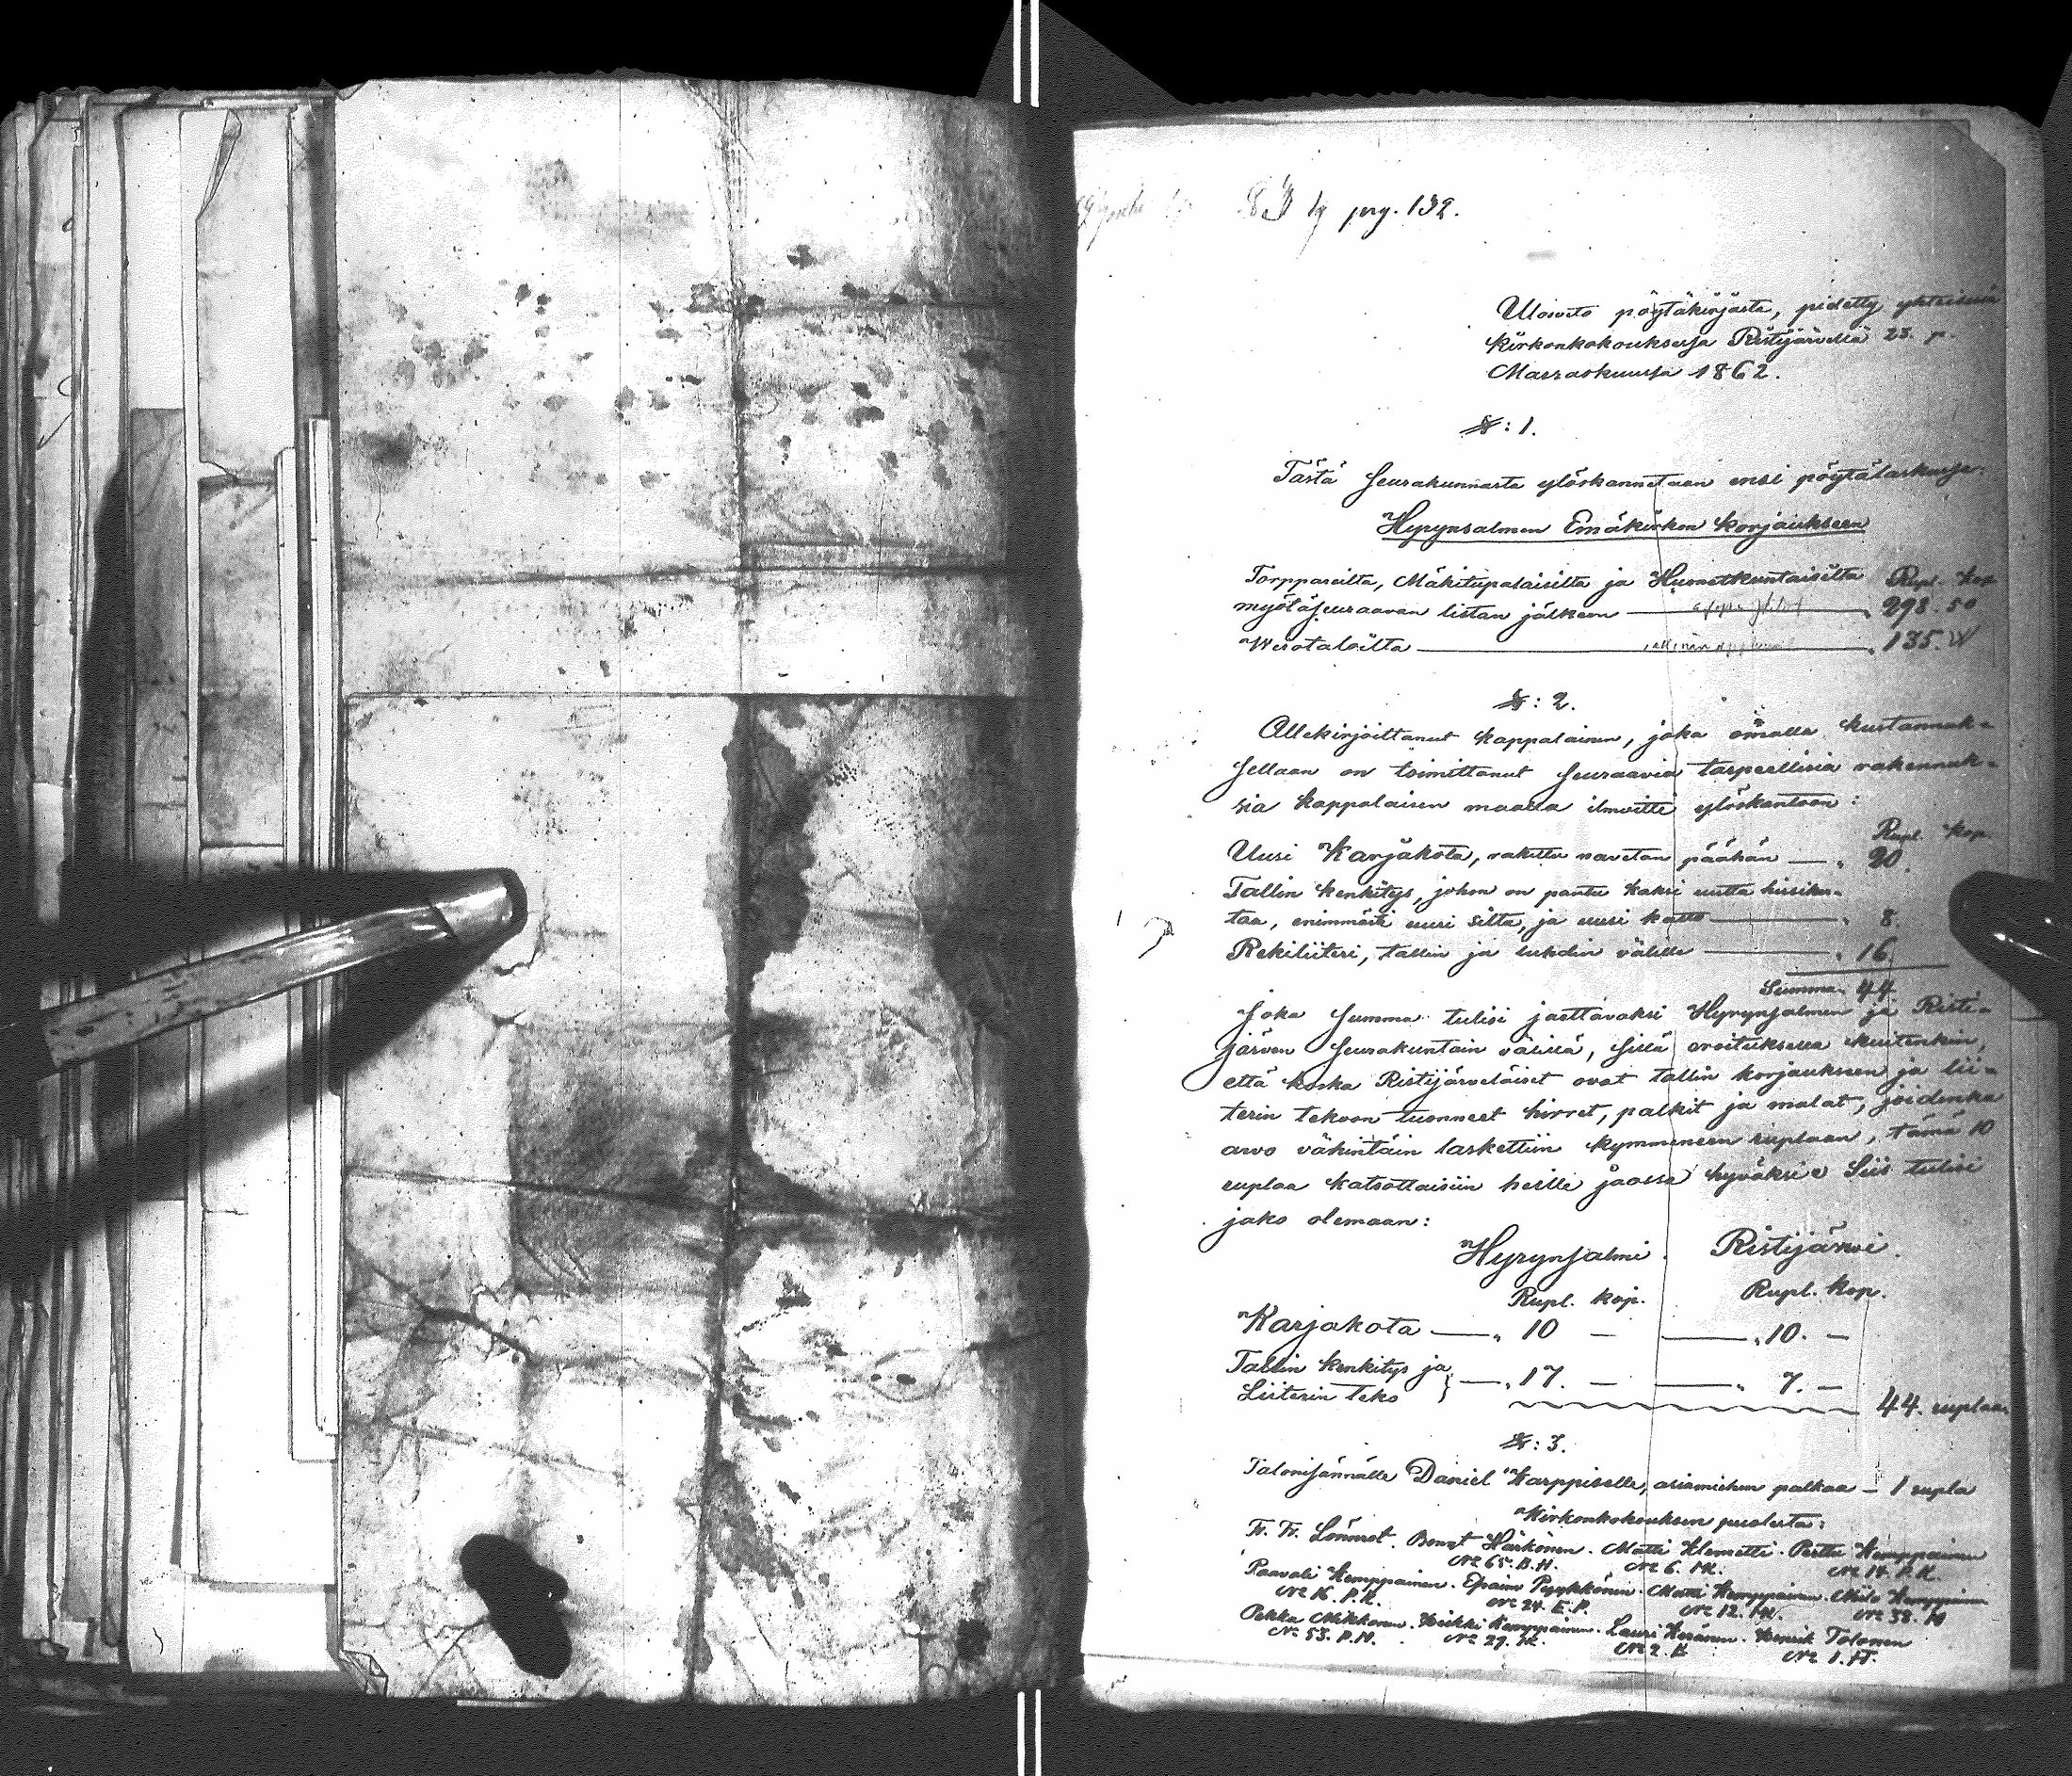 pag. 132.
Ulosveto pöytäkirjasta, pidetty yhteisessä
kirkonkokouksessa Ristijärvellä 23. p.
Marraskuussa 1862.
§: 1.
Tästä Seurakunnasta ylöskannetaan ensi pöytälaskussa.
Hyrynsalmen Emäkirkon korjaukseen
Torppareilta, Mäkitupalaisilta ja Huonetkuntaisilta Rupl. Kop
myötäseuraavan listan jälkeen 298. 50
Werotaloilta 135.
§: 2.
Allekirjoittanut kappalainen, joka omalla kustannuk-
sellaan on toimittanut seuraavia tarpeellisia rakennuk-
sia kappalaisen maalla ilmoitti ylöskantoon:
Rupl. Kop.
Uusi Karjakota, rakettu navetan päähän — „ 20.
Tallin kenkitys, johon on pantu kaksi uutta hirsiker-
taa, enimmästi uusi silta, ja uusi katto — „ 8.
Rekiliiteri, tallin ja luhdin välille — „ 16.
Summa 44
Joka Summa tulisi jaettavaksi Hyrynsalmen ja Risti-
järven Seurakuntain välillä, sillä muitenkin,
että koska Ristijärveläiset ovat tallin korjaukseen ja lii-
terin tekoon tuonneet hirret, palkit ja malat, joidenka
arvo vähintäin laskettiin kymmeneen ruplaan, tämä 10
ruplaa katsottaisiin heille jaossa hyväksi. Siis tulisi
jako olemaan:
Hyrynsalmi. Ristijärwi.
Rupl. kop. Rupl. kop.
Karjakota — „ 10 — — „ 10. —
Tallin kenkitys ja
Liiterin teko } — „ 17. — — „ 7. —
44. ruplaa
§: 3.
Talonisännälle Daniel Karppiselle, asiamiehen palkaa — 1 rupla
Kirkonkokouksen puolesta:
Lönnrot. Härkönen. Matti Klemetti. Perttu Kemppainen
№ 65. B.H. № 6. № 14. P.K.
Paavali Kemppainen. Epraim Pyykkönen. Matti Kemppainen. Kemppainen
№ 16. P.K. № 24. E.P. № 12. № 38.
Pekka Mikkonen. Heikki Kemppainen. Lauri Keränen. Henrik Tolonen
№ 53. P.M. № 29. № 2. № 1.